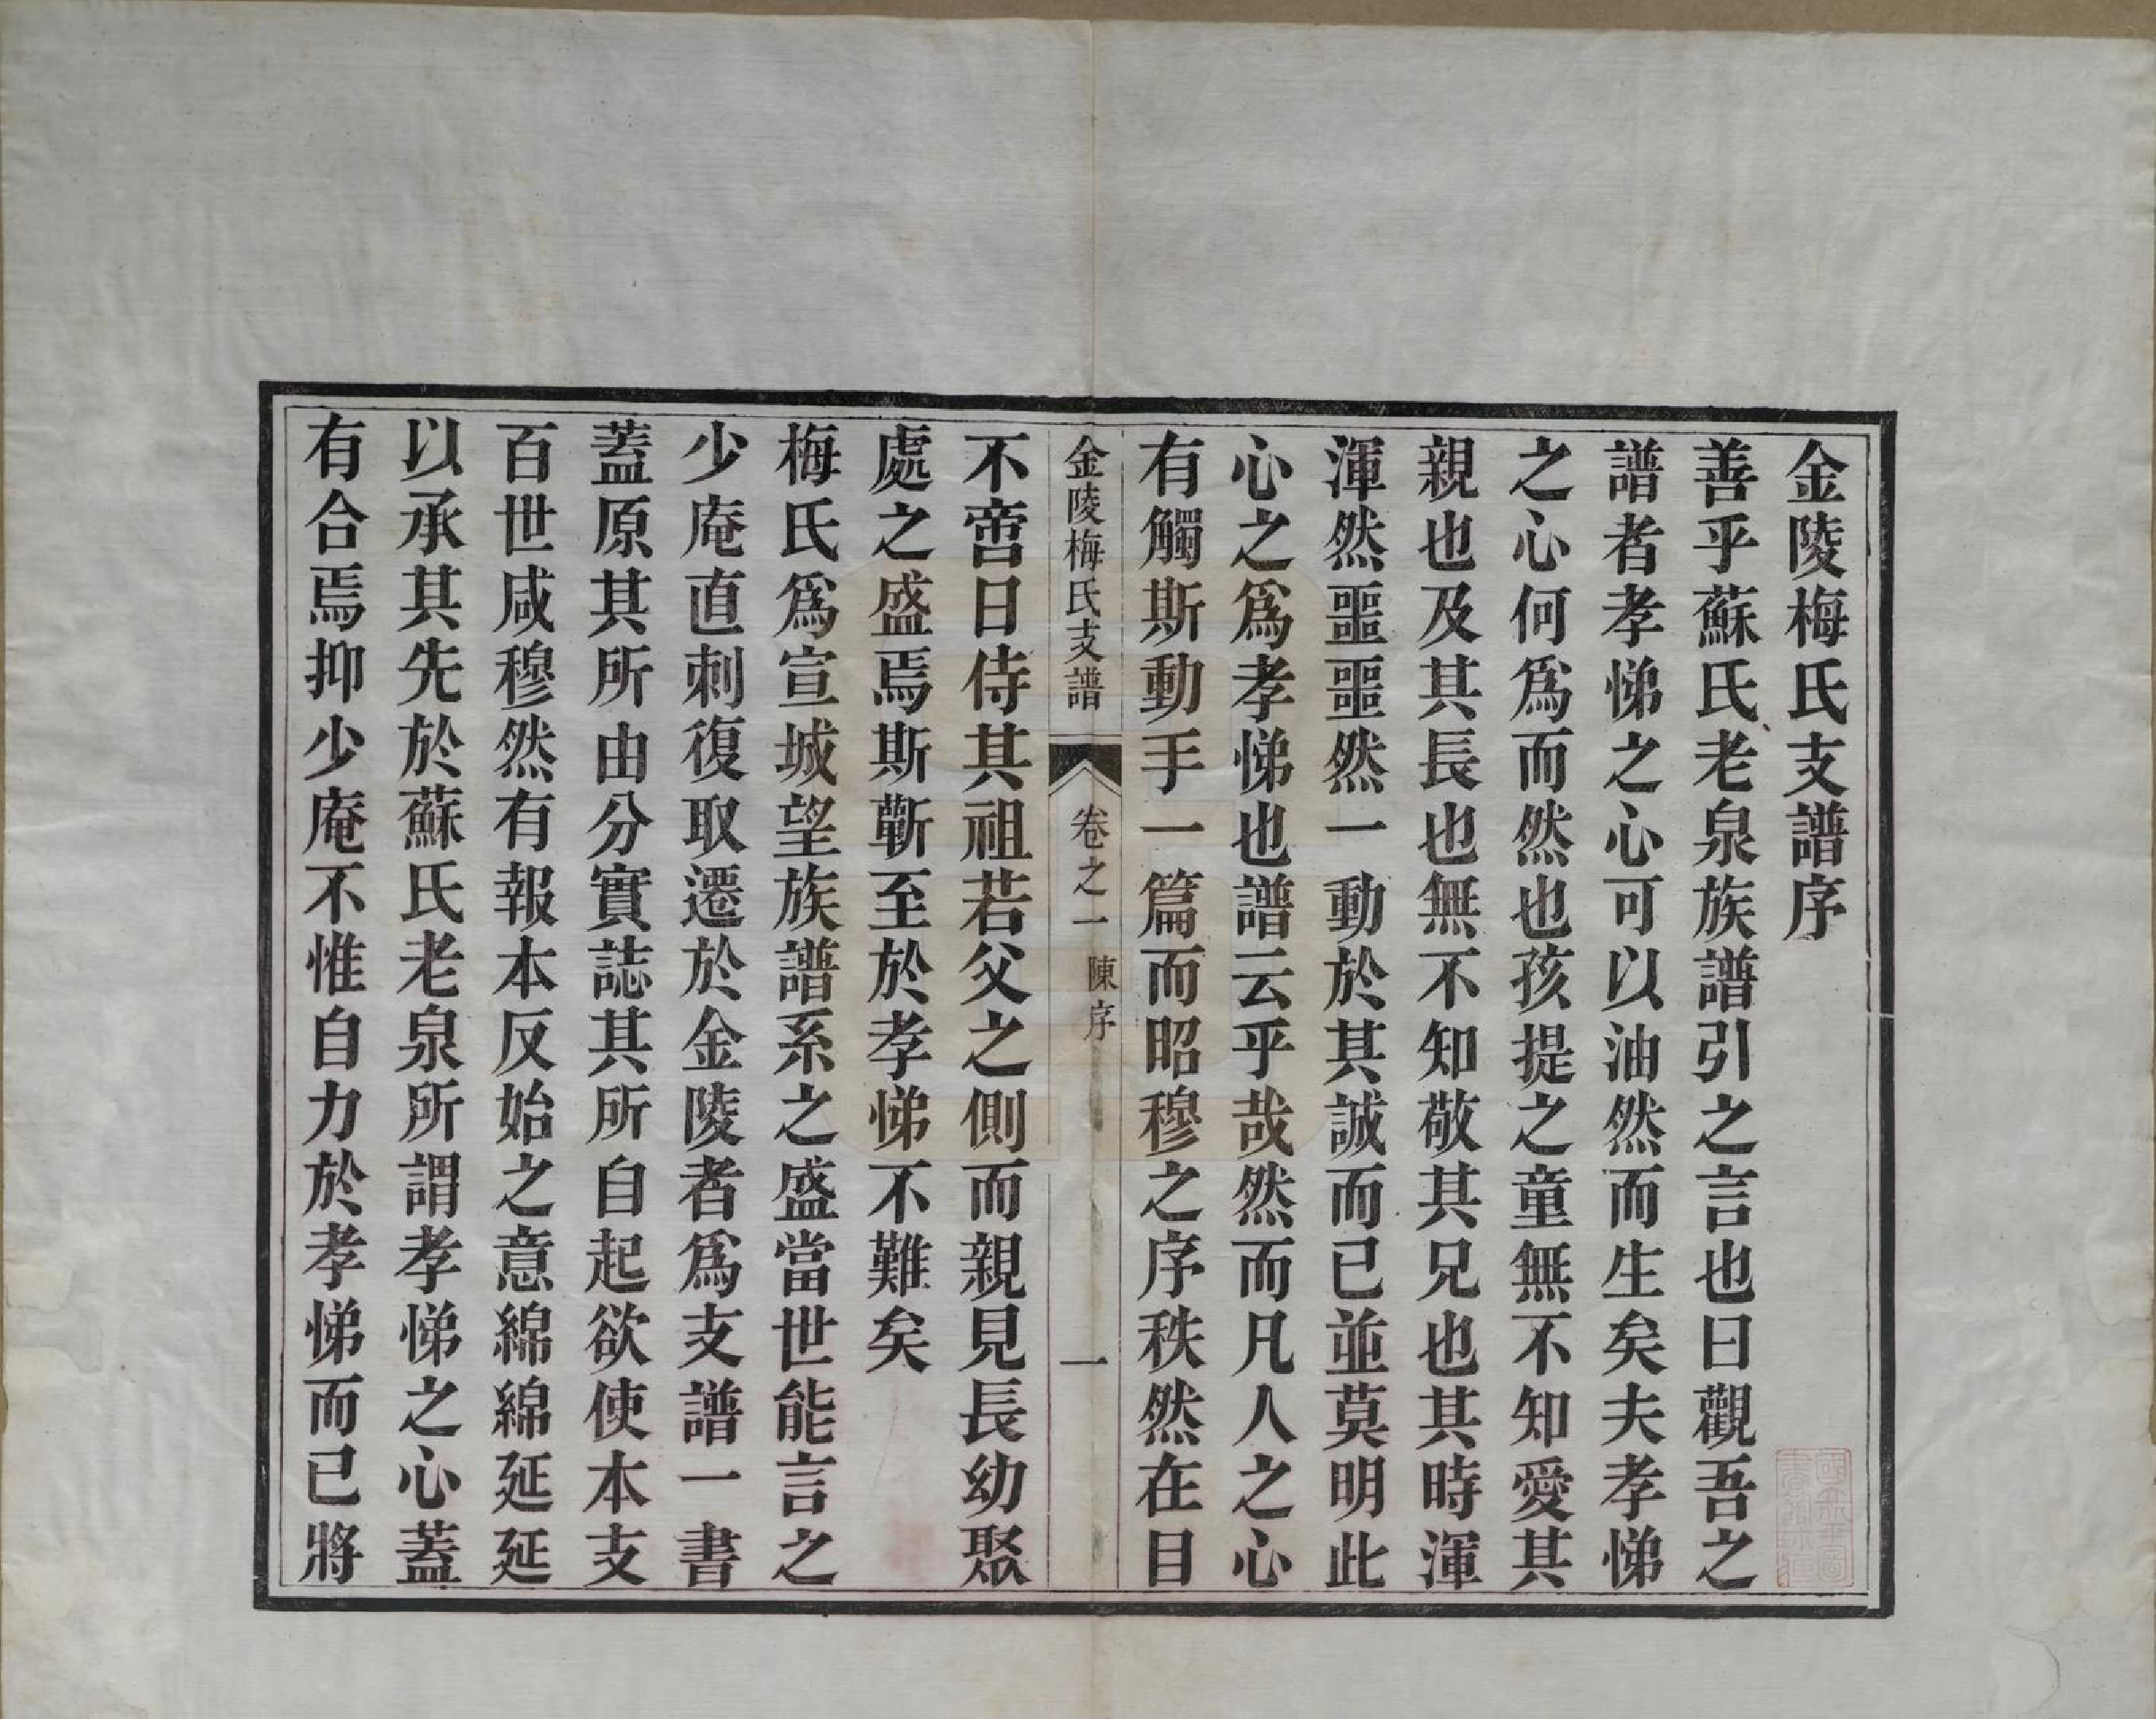 金陵梅氏支譜序
善乎蘇氏老泉族譜引之言也曰觀吾之
譜者孝悌之心可以油然而生矣夫孝悌
之心何爲而然也孩提之童無不知愛其
親也及其長也無不知敬其兄也其時渾
渾然噩噩然一動於其誠而已並莫明此
心之爲孝悌也譜云乎哉然而凡人之心
有觸斯動手一篇而昭穆之序秩然在目
金陵梅氏支譜 卷之一 陳序 一
不啻日侍其祖若父之側而親見長幼聚
處之盛焉斯蘄至於孝悌不難矣
梅氏爲宣城望族譜系之盛當世能言之
少庵直刺復取遷於金陵者爲支譜一書
蓋原其所由分實誌其所自起欲使本支
百世咸穆然有報本反始之意綿綿延延
以承其先於蘇氏老泉所謂孝悌之心蓋
有合焉抑少庵不惟自力於孝悌而已將